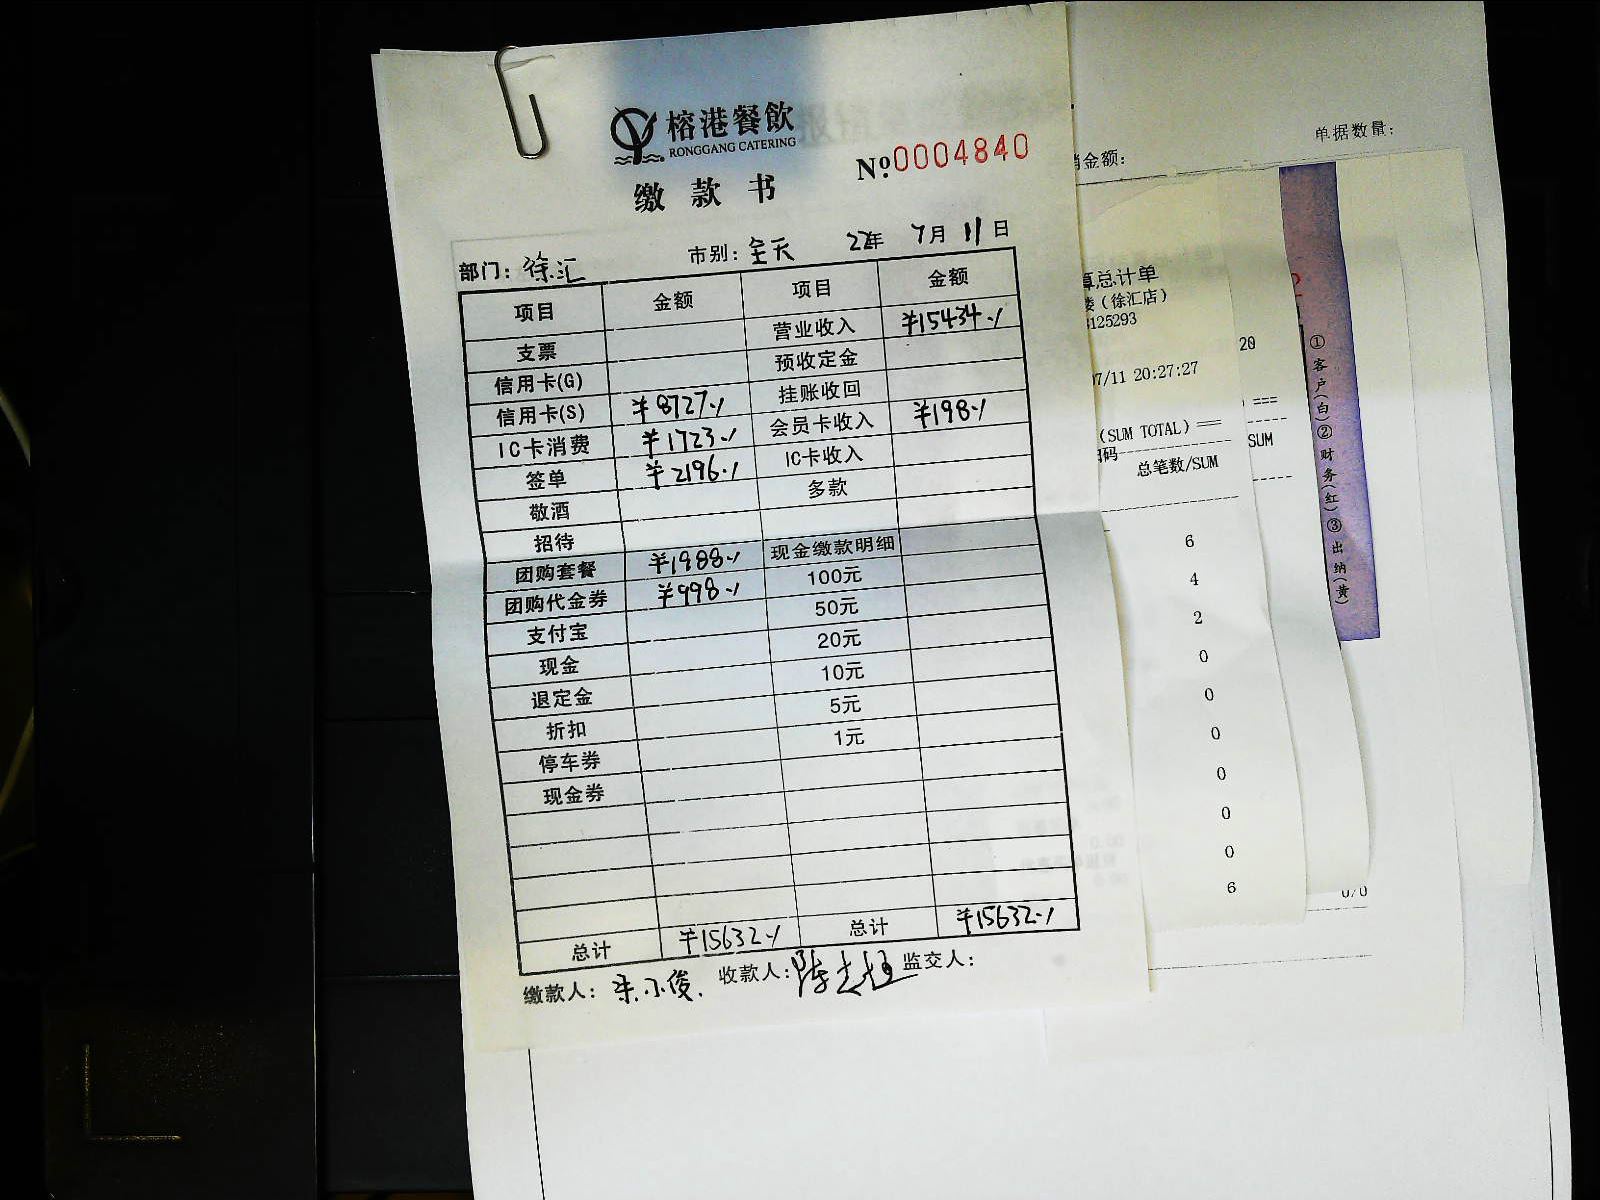 榕港餐飲
RONGGANG CATERING
№0004840
缴款书
部门：徐汇 市别：全天 22年 7月 11日
项目 金额 项目 金额
支票 营业收入 ¥15434.-/
信用卡(G) 预收定金
信用卡(S) ¥8727.-/ 挂账收回
IC卡消费 ¥1723.-/ 会员卡收入 ¥198.-/
签单 ¥2196.-/ IC卡收入
敬酒 多款
招待
团购套餐 ¥1988.-/ 现金缴款明细
团购代金券 ¥998.-/ 100元
支付宝 50元
现金 20元
退定金 10元
折扣 5元
停车券 1元
现金券
总计 ¥15632.-/ 总计 ¥15632.-/
缴款人： 收款人： 监交人：
单据数量：
金额：
算总计单
楼（徐汇店）
125293
20
07/11 20:27:27
===
(SUM TOTAL)===
SUM
码
总笔数/SUM
6
4
2
0
0
0
0
0
0
6
0/0
①客户(白)②财务(红)③出纳(黄)